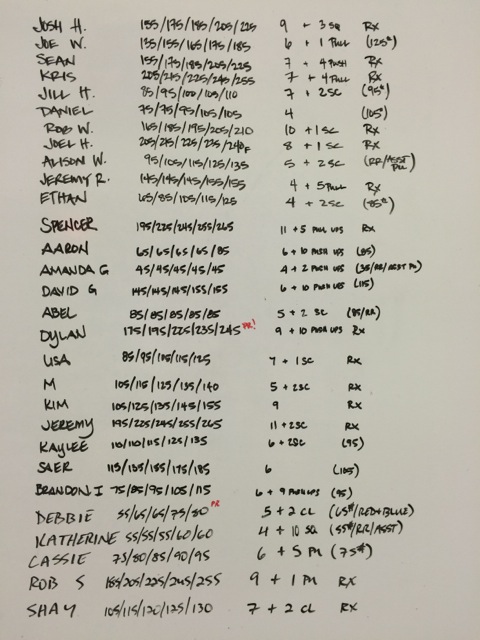 JOSH H. 155/175/185/205/225 9 + 3 SQ RX
JOE W. 135/155/165/175/185 6 + 1 PULL (125#)
SEAN 155/175/185/205/225 7 + 4 PUSH RX
KRIS 205/215/225/245/255 7 + 4 PULL RX
JILL H. 85/95/100/105/110 7 + 2 SC (95#)
DANIEL 75/75/95/105/105 4 (105)
ROB W. 165/185/195/205/210 10 + 1 SC RX
JOEL H. 205/215/225/235/240F 8 + 1 SC RX
ALISON W. 95/105/115/125/135 5 + 2 SC (RR/ASST PULL)
JEREMY R. 145/145/145/155/155 4 + 5 PULL RX
ETHAN 65/85/105/115/125 4 + 2 SC (85#)
SPENCER 195/225/245/255/265 11 + 5 PULL UPS RX
AARON 65/65/65/65/85 6 + 10 PUSH UPS (85)
AMANDA G 45/45/45/45/45 4 + 2 PUSH UPS (35/RR/ASST PU)
DAVID G 145/145/145/155/155 6 + 10 PUSH UPS (115)
ABEL 85/85/85/85/85 5 + 2 SC (85/RR)
DYLAN 175/195/225/235/245 PR! 9 + 10 PUSH UPS RX
LISA 85/95/105/115/125 7 + 1 SC RX
M 105/115/125/135/140 5 + 2SC RX
KIM 105/125/135/145/155 9 RX
JEREMY 195/225/245/255/265 11 + 2SC RX
KAYLEE 110/110/115/125/135 6 + 2SC (95)
SAER 115/135/155/175/185 6 (105)
BRANDON I 75/85/95/105/115 6 + 9 PUSH UPS (95)
DEBBIE 55/65/65/75/80 PR 5 + 2 CL (65#/RED+BLUE)
KATHERINE 55/55/55/60/60 4 + 10 SQ (55#/RR/ASST)
CASSIE 75/80/85/90/95 6 + 5 PU (75#)
ROB S 185/205/225/245/255 9 + 1 PU RX
SHAY 105/115/120/125/130 7 + 2 CL RX